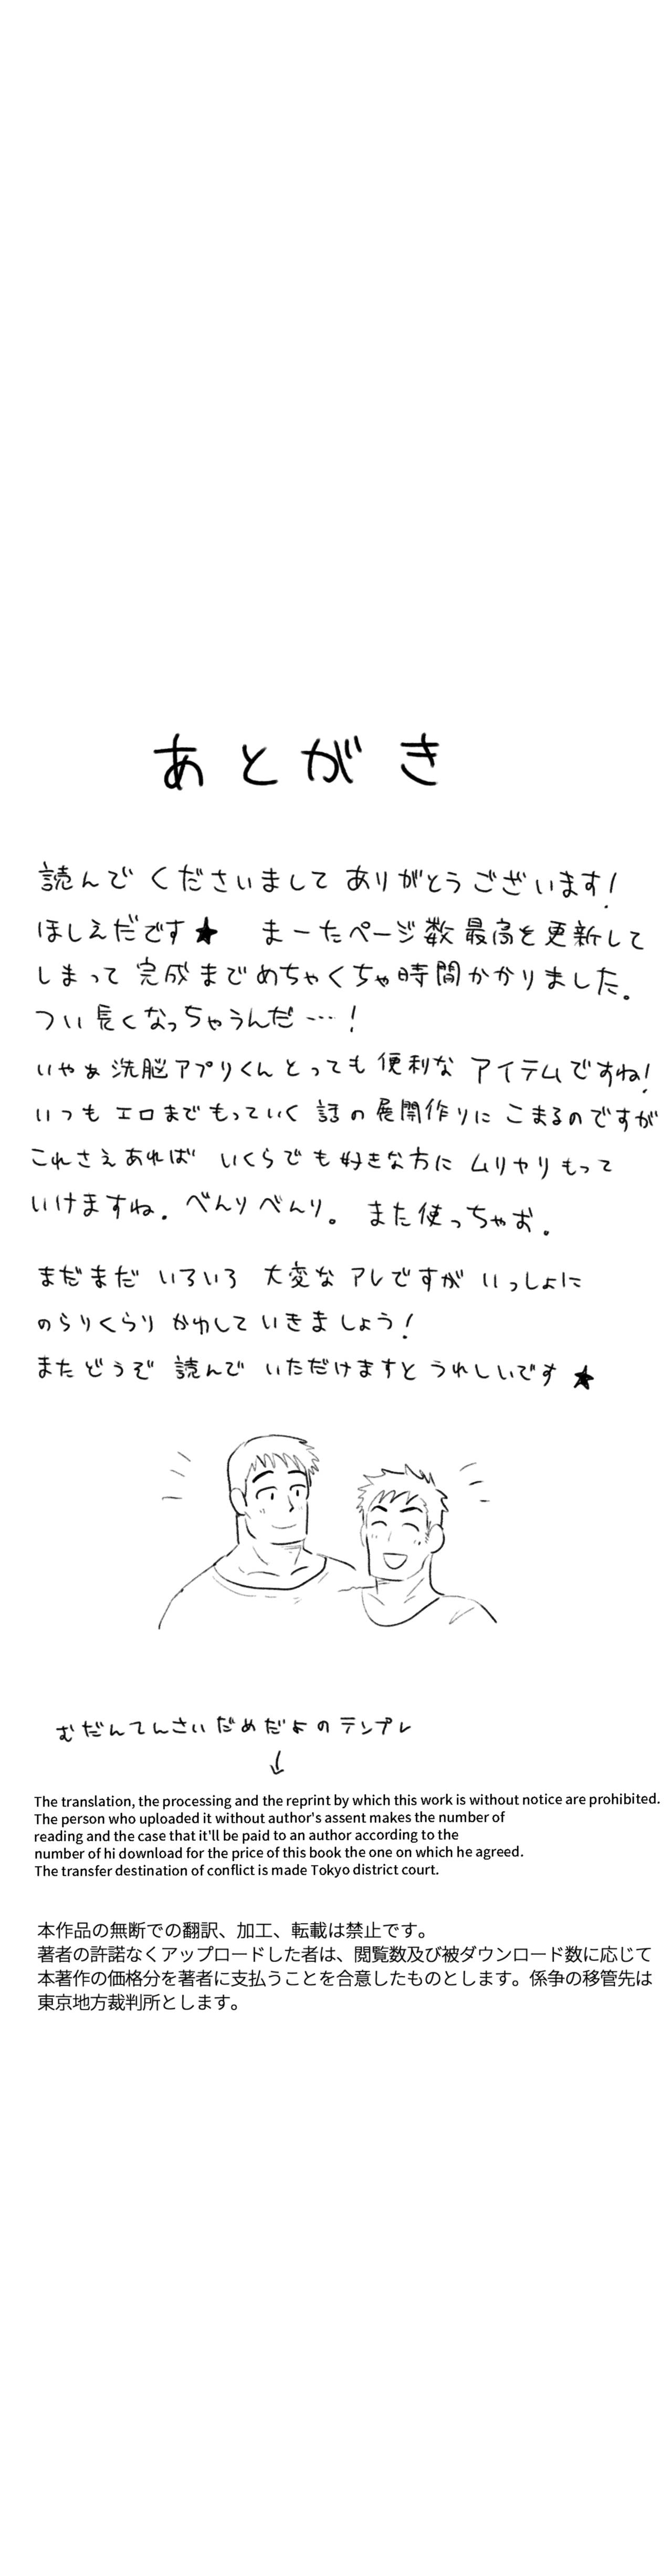 あとがき
読んでくださいまして ありがとうございます!
ほしえだです★ まーたページ数最高を更新して
しまって完成までめちゃくちゃ時間かかりました。
つい長くなっちゃうんだ…!
いやぁ洗脳アプリくんとっても便利な アイテムですね!
いつも エロまでもっていく 話の展開作りに こまるのですが
これさえあれば いくらでも好きな方に ムリヤリもって
いけますね。べんりべんり。また使っちゃお。
まだまだ いろいろ 大変な アレですが いっしょに
のらりくらり かわして いきましょう!
またどうぞ 読んで いただけますと うれしいです★
むだんてんさいだめだよのテンプレ
↓
The translation, the processing and the reprint by which this work is without notice are prohibited.
The person who uploaded it without author's assent makes the number of
reading and the case that it'll be paid to an author according to the
number of hi download for the price of this book the one on which he agreed.
The transfer destination of conflict is made Tokyo district court.
本作品の無断での翻訳、加工、転載は禁止です。
著者の許諾なくアップロードした者は、閲覧数及び被ダウンロード数に応じて
本著作の価格分を著者に支払うことを合意したものとします。係争の移管先は
東京地方裁判所とします。